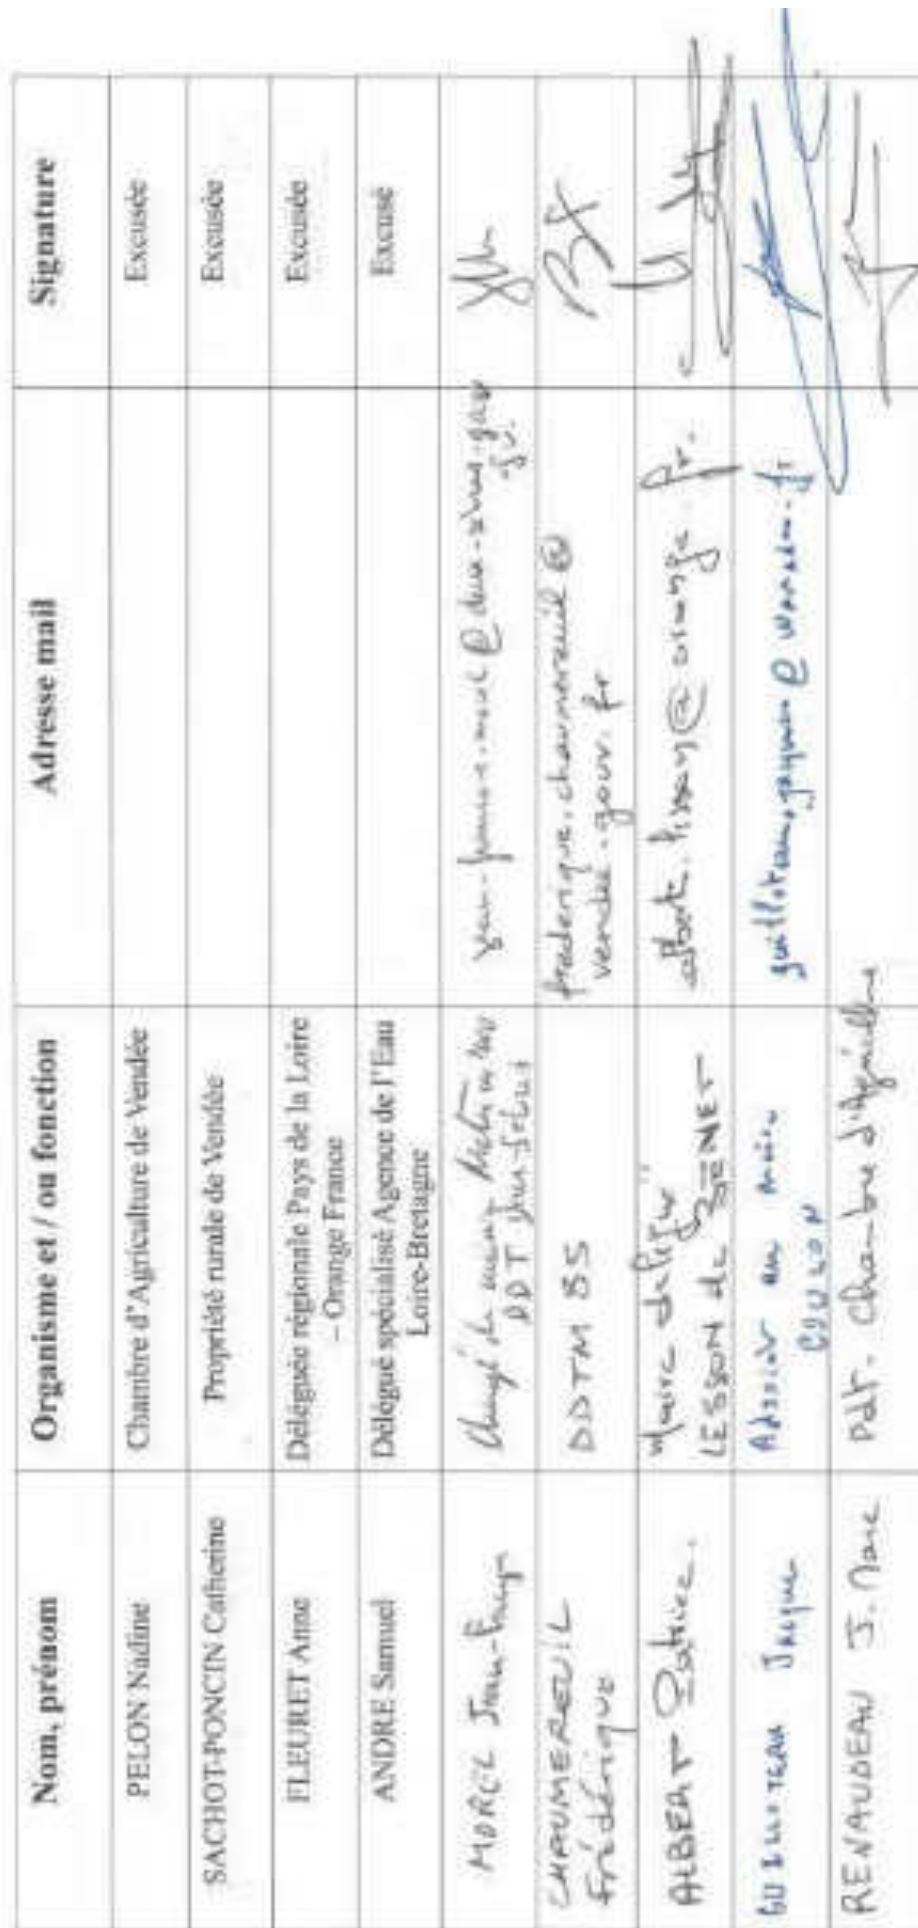 Nom, prénom
Organisme et / ou fonction
Adresse mail
Signature
PELON Nadine
Chambre d'Agriculture de Vendée
Excusée
SACHOT-PONCIN Catherine
Propriété rurale de Vendée
Excusée
FLEURET Anne
Déléguée régionale Pays de la Loire
– Orange France
Excusée
ANDRE Samuel
Délégué spécialisé Agence de l'Eau
Loire-Bretagne
Excusé
Jean-François
Chargé de mission
DDT Deux-Sèvres
CHAUMEREUIL
Frédérique
DDTM 85
frederique.chaumereuil@
vendee.gouv.fr
ALBERT
Maire
LESSON de BENET
@ orange.fr
GUILLOTEAU Jacques
Adjoint au maire
COULON
guilloteau.jacques@wanadoo.fr
RENAUDEAU J. Marc
Pdt. Chambre d'Agriculture